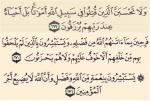 وَلَا تَحْسَبَنَّ الَّذِينَ قُتِلُوا فِي سَبِيلِ اللَّهِ أَمْوَاتًا بَلْ أَحْيَاءٌ
عِندَ رَبِّهِمْ يُرْزَقُونَ
فَرِحِينَ بِمَا آتَاهُمُ اللَّهُ مِن فَضْلِهِ وَيَسْتَبْشِرُونَ بِالَّذِينَ لَمْ يَلْحَقُوا
بِهِم مِّنْ خَلْفِهِمْ أَلَّا خَوْفٌ عَلَيْهِمْ وَلَا هُمْ يَحْزَنُونَ
يَسْتَبْشِرُونَ بِنِعْمَةٍ مِّنَ اللَّهِ وَفَضْلٍ وَأَنَّ اللَّهَ لَا يُضِيعُ أَجْرَ
الْمُؤْمِنِينَ